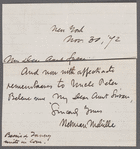 New York
Nov 30, '72
My Dear Aunt
And now with affectionate
remembrances to Uncle Peter
Believe me My Dear Aunt Susan,
Sincerely Yours
Herman Melville
Bessie & Fanny
unite in love.